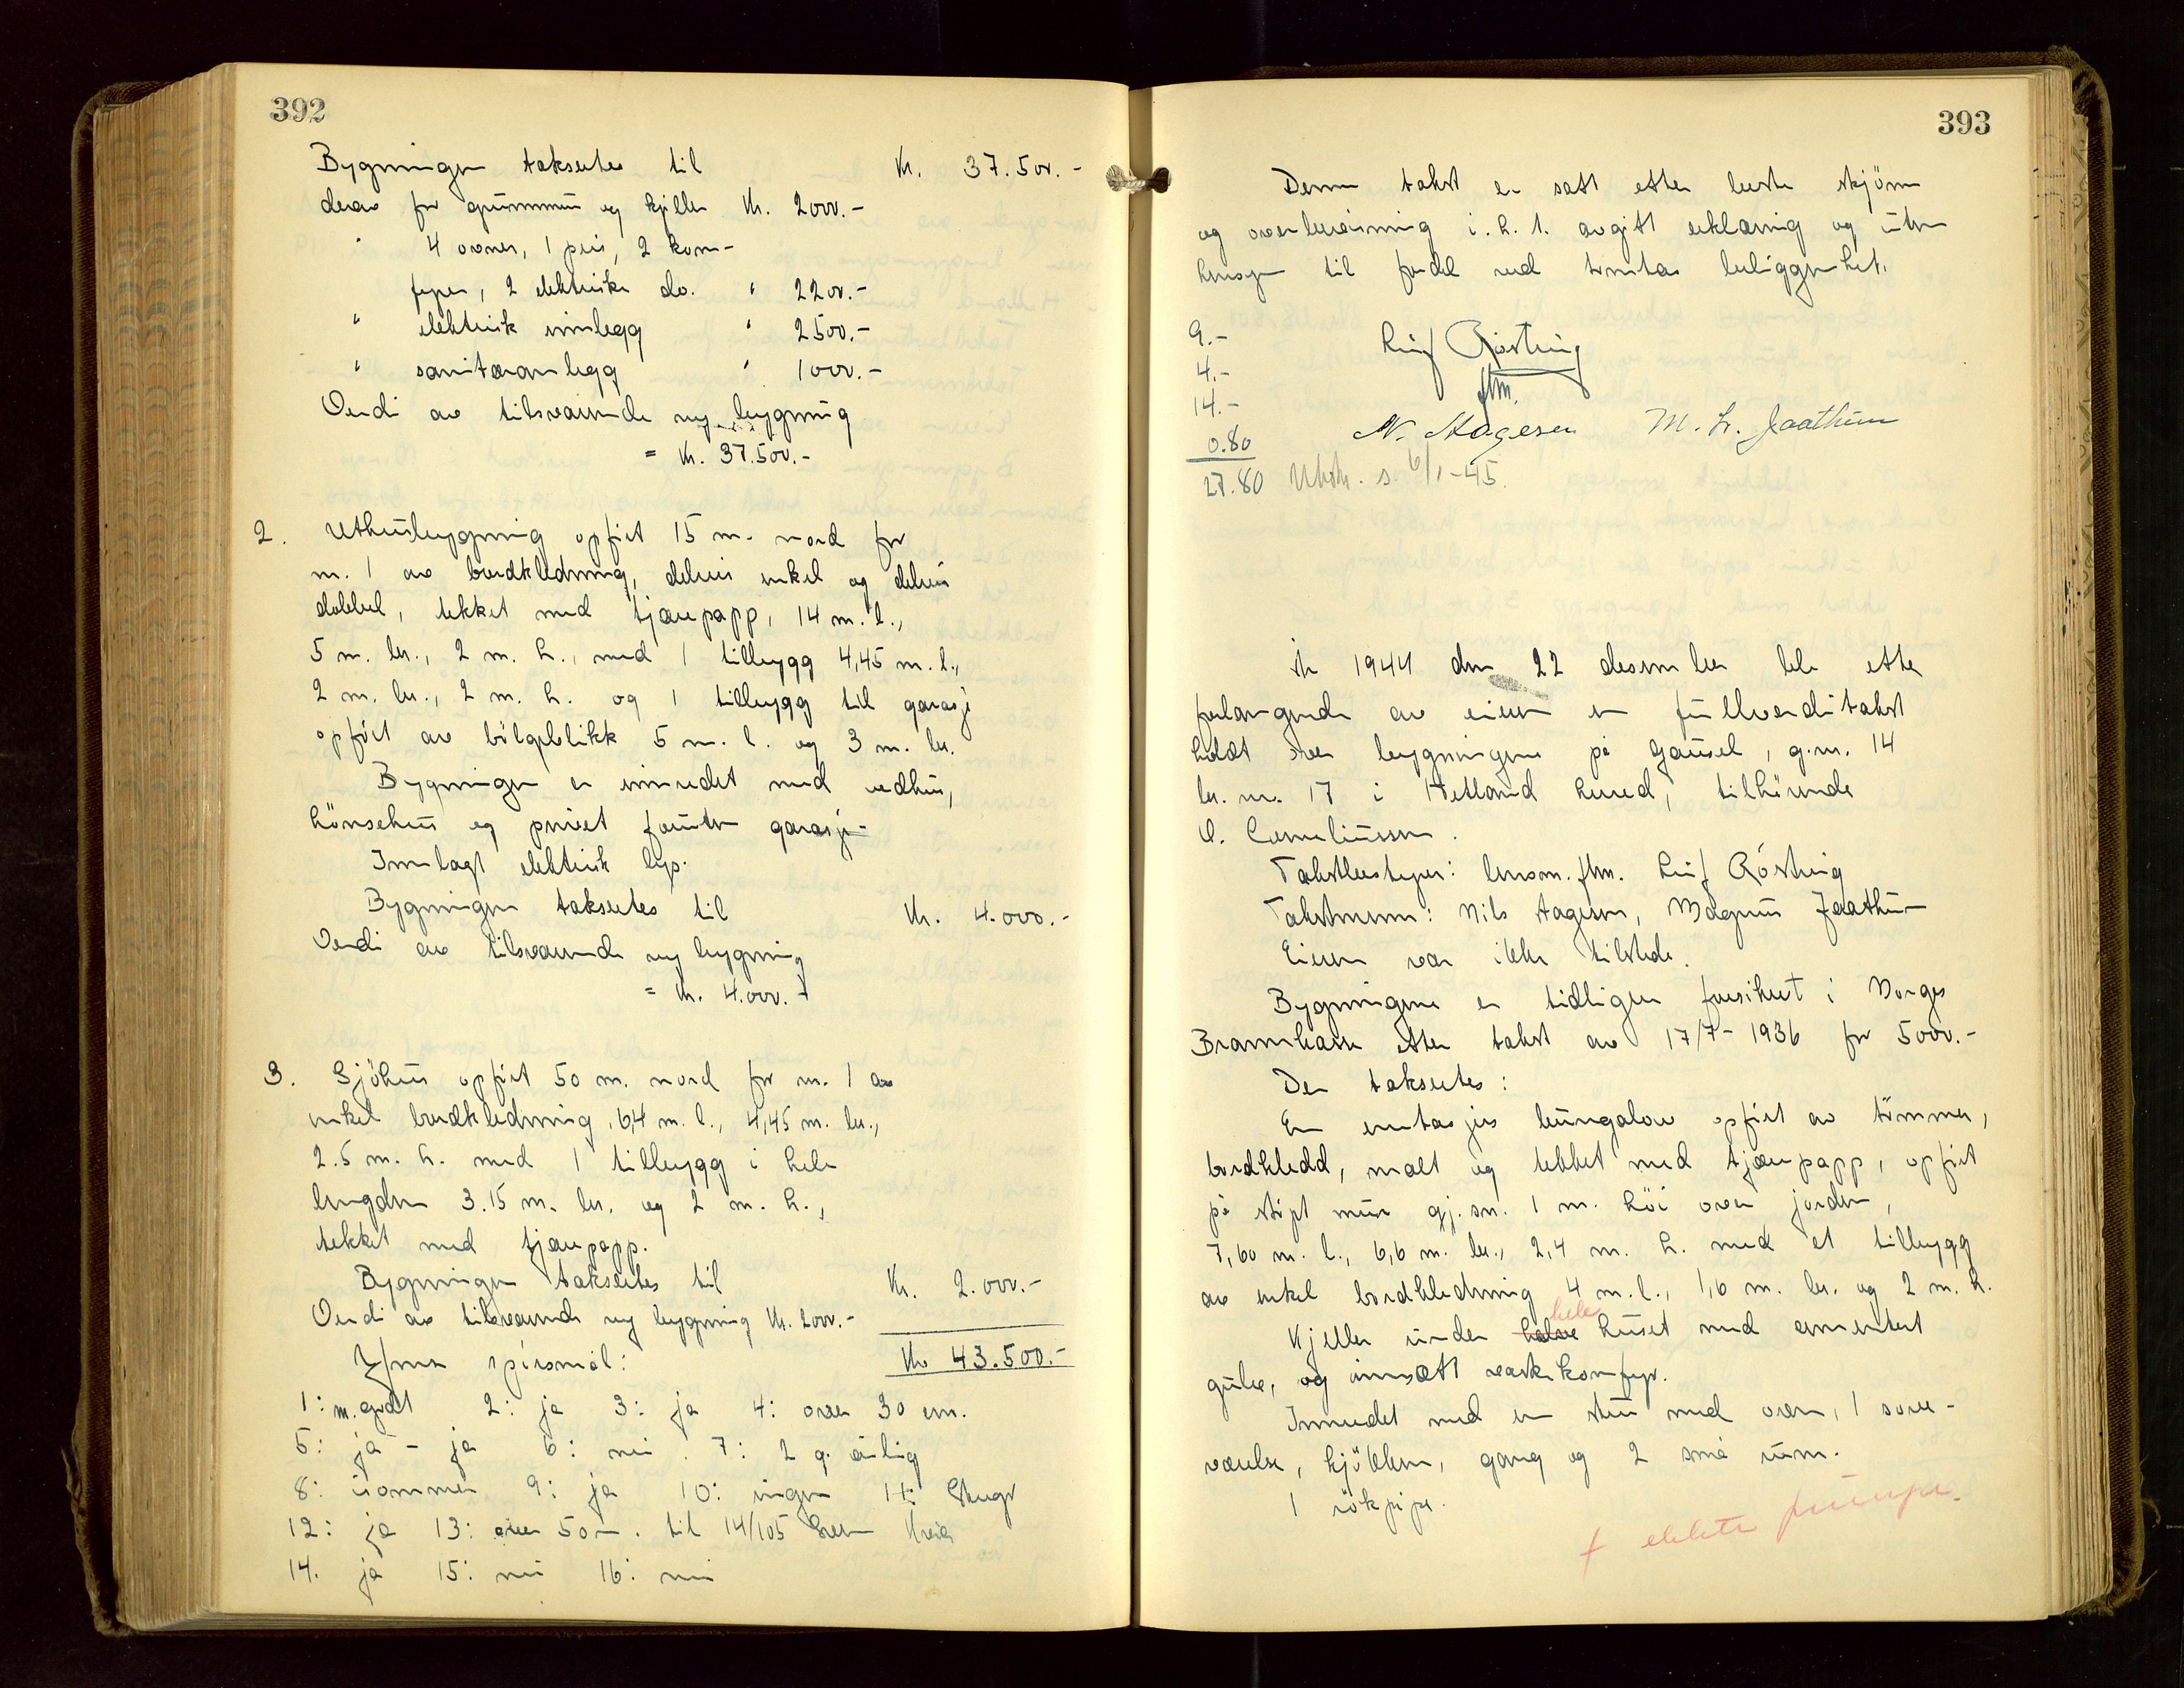 392
Bygningen takseres til Kr. 37.500.-
derav for grunnmur og kjeller Kr. 2000.-
" 4 ovner, 1 peis, 2 kom-
fyrer, 2 elektriske do. " 2200.-
" elektrisk innlegg " 2500.-
" sanitæranlegg " 1000.-
Verdi av tilsvarende ny bygning
= Kr. 37.500.-
2. Uthusbygning opført 15 m. nord for
nr. 1 av bordkledning, delvis enkel og delvis
dobbel, tekket med tjærepapp, 14 m. l.,
5 m. br., 2 m. h., med 1 tilbygg 4,45 m. l.,
2 m. br., 2 m. h. og 1 tilbygg til garasje
opført av bölgeblikk 5 m. l. og 3 m. br.
Bygningen er innredet med vedhus,
hönsehus og privet foruten garasje
Innlagt elektrisk lys.
Bygningen takseres til Kr. 4.000.-
Verdi av tilsvarende ny bygning
= Kr. 4.000.-
3. Sjöhus opfört 50 m. nord for nr. 1 av
enkel bordkledning, 6,4 m. l., 4,45 m. br.,
2.5 m. h. med 1 tilbygg i hele
lengden 3.15 m. br. og 2 m. h.,
tekket med tjærepapp.
Bygningen takseres til Kr. 2.000.-
Verdi av tilsvarende ny bygning Kr. 2000.-
spörsmål: Kr 43.500.-
1: m. godt 2: ja 3: ja 4: over 30 cm.
5: ja - ja 6: nei. 7: 2 g. årlig
8: isommer 9: ja 10: ingen 11:
12: ja 13: over 50 m. til 14/105
14. ja 15: nei 16: nei
393
Denne takst er satt etter beste skjönn
og overbevisning i. h. t. avgitt erklæring og uten
hensyn til fordel ved tomtas beliggenhet.
9.- Leif Rösting
4.- flm.
14.-
0.80 N. Aagesen M. L. Jaathun
27.80 Utskr. s. 6/1-45.
År 1944 den 22 desember ble etter
forlangende av eieren en fullverditakst
holdt over bygningene på Gausel, g.nr. 14
br. nr. 17 i Hetland herred, tilhörende
O. Corneliussen.
Takstbestyrer: lensm. flm. Leif Rösting
Takstmenn: Nils Aagesen, Magnus Jaathun
Eieren var ikke tilstede.
Bygningene er tidligere forsikret i Norges
Brannkasse etter takst av 17/7-1936 for 5000.-
Der takseres:
En enetasjes bungalow opfört av tömmer,
bordkledd, malt og tekket med tjærepapp, opfört
på stöpt mur gj.sn. 1 m. höi over jorden,
7,60 m. l., 6,6 m. br., 2,4 m. h. med et tilbygg
av enkel bordkledning 4 m. l., 1,6 m. br. og 2 m. h.
Kjeller under halve hele huset med cementert
gulv, og innsatt vaskekomfyr.
Innredet med en stue med ovn, 1 sove-
værelse, kjökken, gang og 2 små rum.
1 rökpipe.
+ elektr. pumpe.